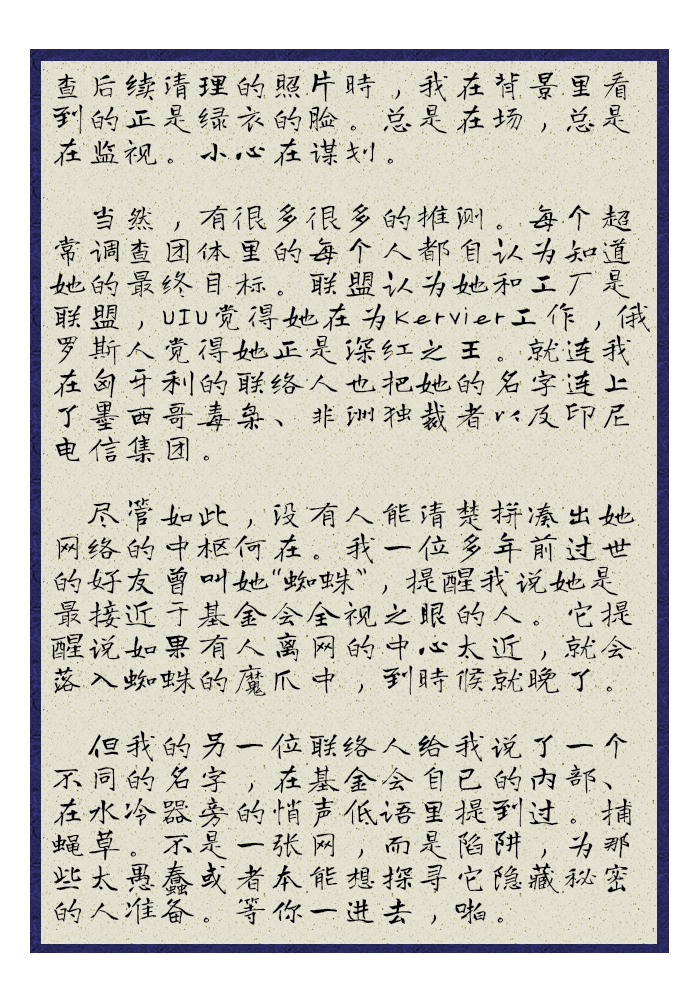 查后续清理的照片時，我在背景里看
到的正是绿衣的脸。总是在场，总是
在监视。小心在谋划。
当然，有很多很多的推测。每个超
常调查团体里的每个人都自认为知道
她的最终目标。联盟认为她和工厂是
联盟，UIU觉得她在为Kervier工作，俄
罗斯人觉得她正是深红之王。就连我
在匈牙利的联络人也把她的名字连上
了墨西哥毒枭、非洲独裁者以及印尼
电信集团。
尽管如此，没有人能清楚拼凑出她
网络的中枢何在。我一位多年前过世
的好友曾叫她“蜘蛛”，提醒我说她是
最接近于基金会全视之眼的人。它提
醒说如果有人离网的中心太近，就会
落入蜘蛛的魔爪中，到時候就晚了。
但我的另一位联络人给我说了一个
不同的名字，在基金会自己的内部、
在水冷器旁的悄声低语里提到过。捕
蝇草。不是一张网，而是陷阱，为那
些太愚蠢或者本能想探寻它隐藏秘密
的人准备。等你一进去，啪。